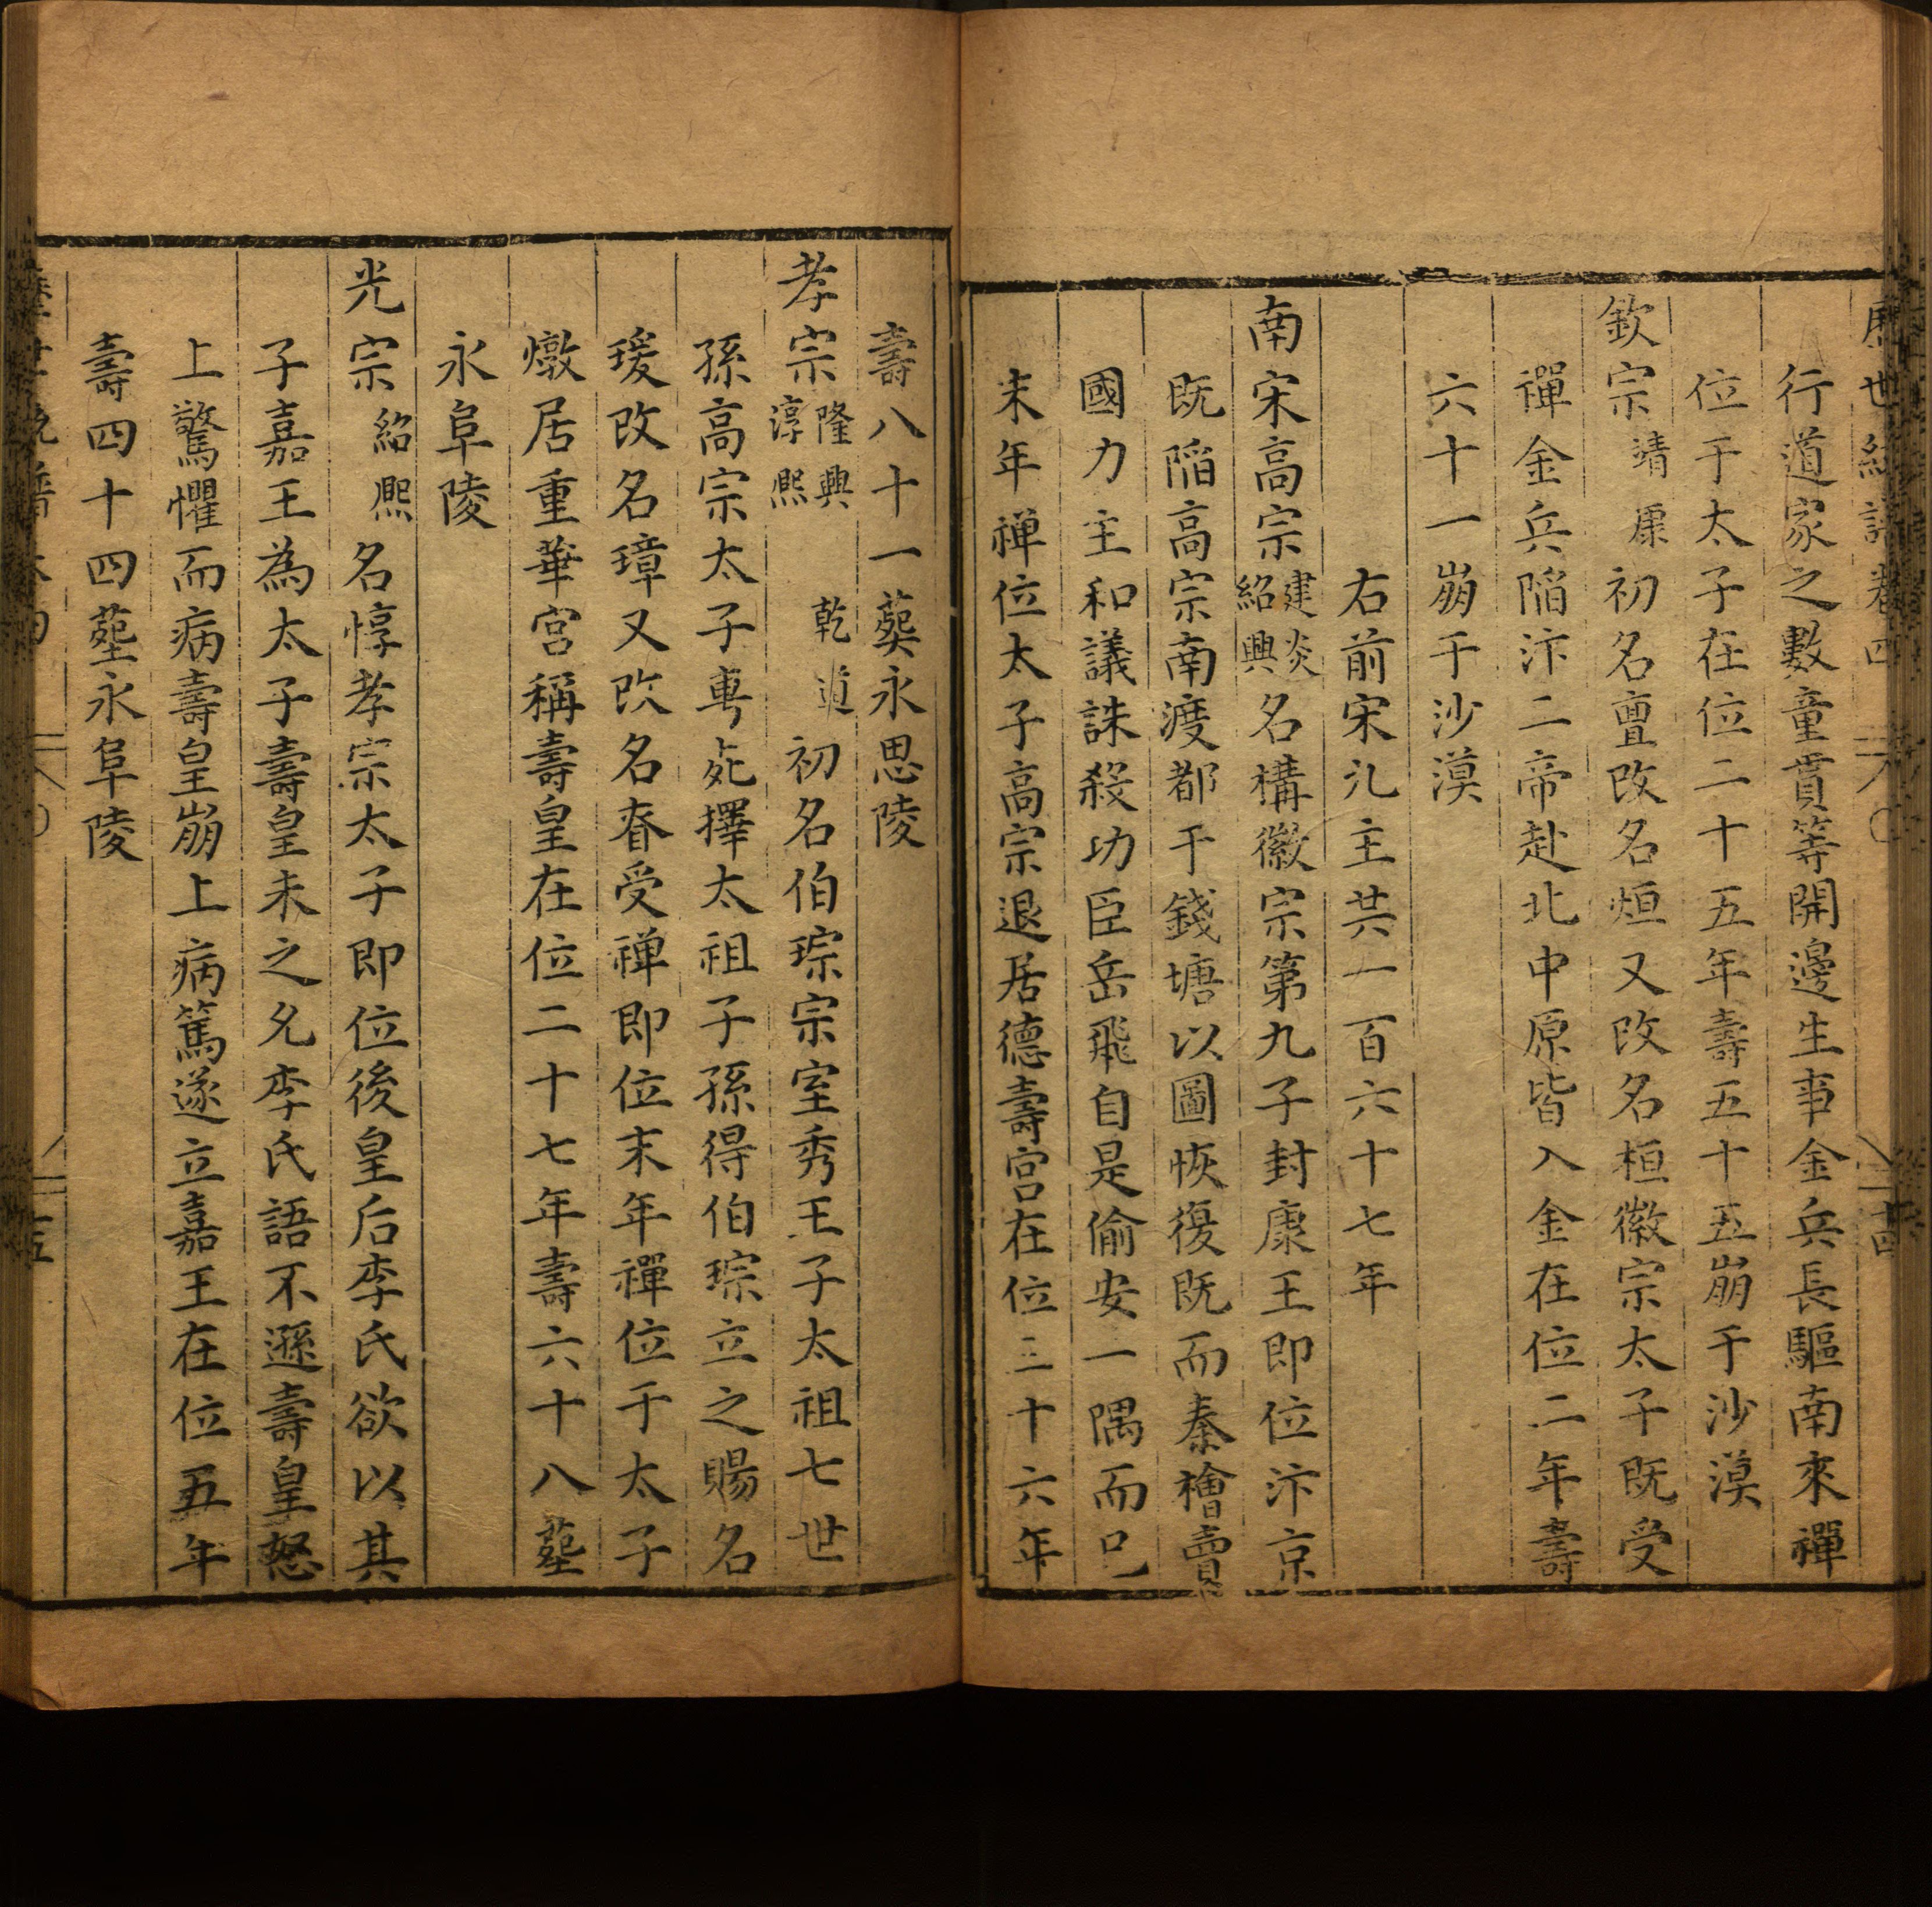 歷世統譜卷四 十四
行道家之數童貫等開邊生事金兵長驅南來禪
位于太子在位二十五年壽五十五崩于沙漠
欽宗靖康初名亶改名烜又改名桓徽宗太子既受
禪金兵陷汴二帝赴北中原皆入金在位二年壽
六十一崩于沙漠
右前宋九主共一百六十七年
南宋高宗建炎紹興名構徽宗第九子封康王即位汴京
既陷高宗南渡都于錢塘以圖恢復既而秦檜賣
國力主和議誅殺功臣岳飛自是偷安一隅而已
末年禅位太子高宗退居德壽宫在位三十六年
壽八十一葬永思陵
孝宗隆興淳熈乾道初名伯琮宗室秀王子太祖七世
孫高宗太子旉死擇太祖子孫得伯琮立之賜名
瑗改名瑋又改名眘受禅即位末年禪位于太子
燉居重華宫稱壽皇在位二十七年壽六十八塟
永阜陵
光宗紹熈名惇孝宗太子即位後皇后李氏欲以其
子嘉王為太子壽皇未之允李氏語不遜壽皇怒
上驚懼而病壽皇崩上病篤遂立嘉王在位五年
壽四十四塟永阜陵